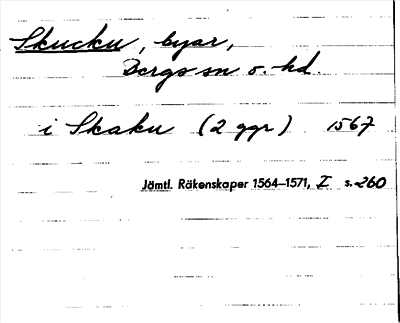 Skucku, byar,
Bergs sn o. hd.
i Skaku (2 ggr) 1567
Jämtl. Räkenskaper 1564–1571, I s. 260